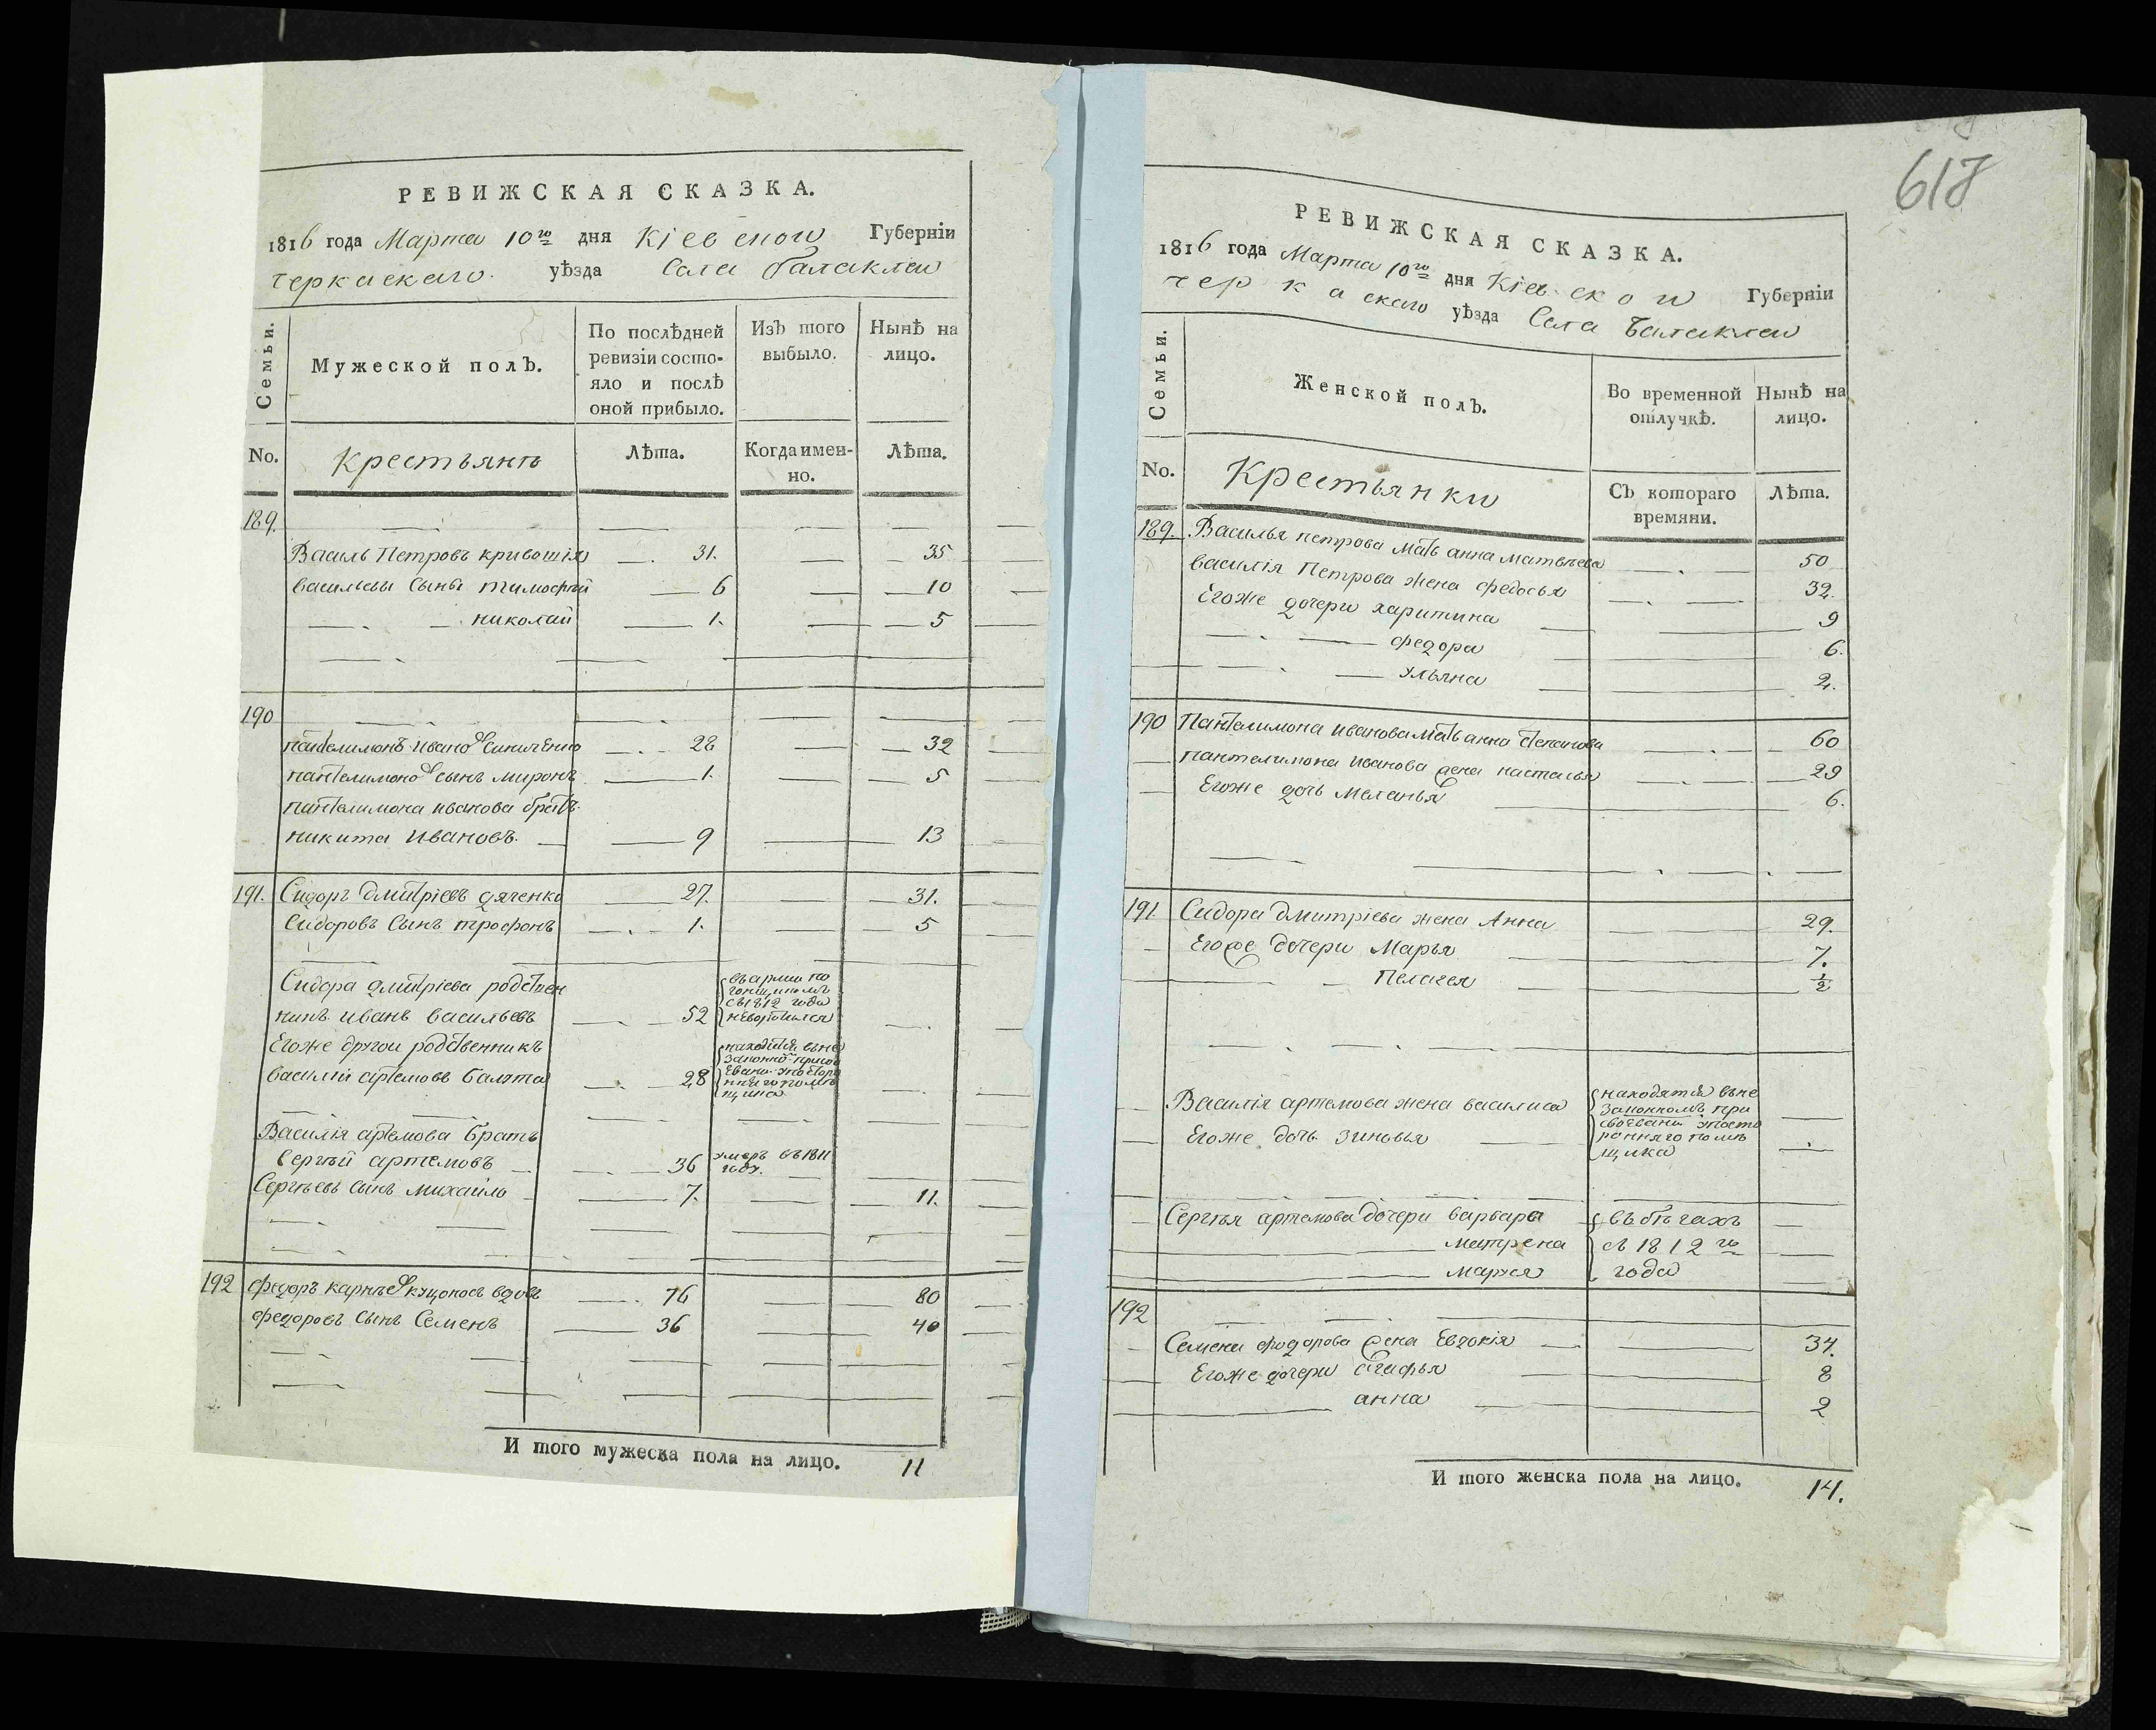 РЕВИЖСКАЯ СКАЗКА.
1816 года Марта 10го дня Кіевской Губерніи
Черкаскаго уѣзда Села балаклеи
Семьи.
Мужеской полъ.
По послѣдней ревизіи состояло и послѣ оной прибыло.
Изъ того выбыло.
Нынѣ на лицо.
No. Крестьянъ Лѣта. Когда именно. Лѣта.
189.
Василь Петровъ кривошія 31. 35
васильевы Сыны тимофѣй 6 10
николай 1. 5
190
пантелимонъ ивановъ 28 32
пантелимоновъ сынъ миронъ 1. 5
пантелимона иванова братъ
никита Ивановъ. 9 13
191. Сидоръ дмитріевъ дяченко 27. 31.
Сидоровъ Сынъ трофонъ 1. 5
Сидора дмитріева родствен
никъ иванъ васильевъ 52 въ арміи по гонщикомъ съ 1812 года неворотился
Егоже другои родственникъ
василій артемовъ балта 28 находится въ не законно присвоевани у посторонняго помѣщика
Василія артемова братъ
Сергѣй артемовъ 36 умеръ въ 1811 году.
Сергѣевъ Сынъ михайло 7. 11.
192 федоръ карпѣевъ куцоносъ вдовъ 76 80
федоровъ Сынъ Семенъ 36 40
И того мужеска пола на лицо. 11
618
РЕВИЖСКАЯ СКАЗКА.
1816 года Марта 10го дня Кіевской Губерніи
черкаскаго уѣзда Села Балаклеи
Семьи.
Женской полъ.
Во временной отлучкѣ.
Нынѣ на лицо.
No. Крестьянки Съ котораго времяни. Лѣта.
189. Василья петрова мать анна матвѣева 50
василія Петрова жена федосья 32.
Егоже дочери харитина 9
федора 6.
ульяна 2.
190 Пантелимона иванова мать анна степанова 60
пантелимона иванова жена настасья 29
Егоже дочь меланья 6.
191 Сидора дмитріева жена Анна 29.
Егоже дочери Марья 7.
Пелагея ½
Василія артемова жена василиса находятся въ не законномъ присвоевани у посторонняго помѣщика
Егоже дочь зиновья
Сергѣя артемова дочери варвара въ бѣгахъ
матрена съ 1812 го
марья года
192
Семена федорова жена Евдокія 34.
Егоже дочери агафья 8
анна 2
И того женска пола на лицо. 14.